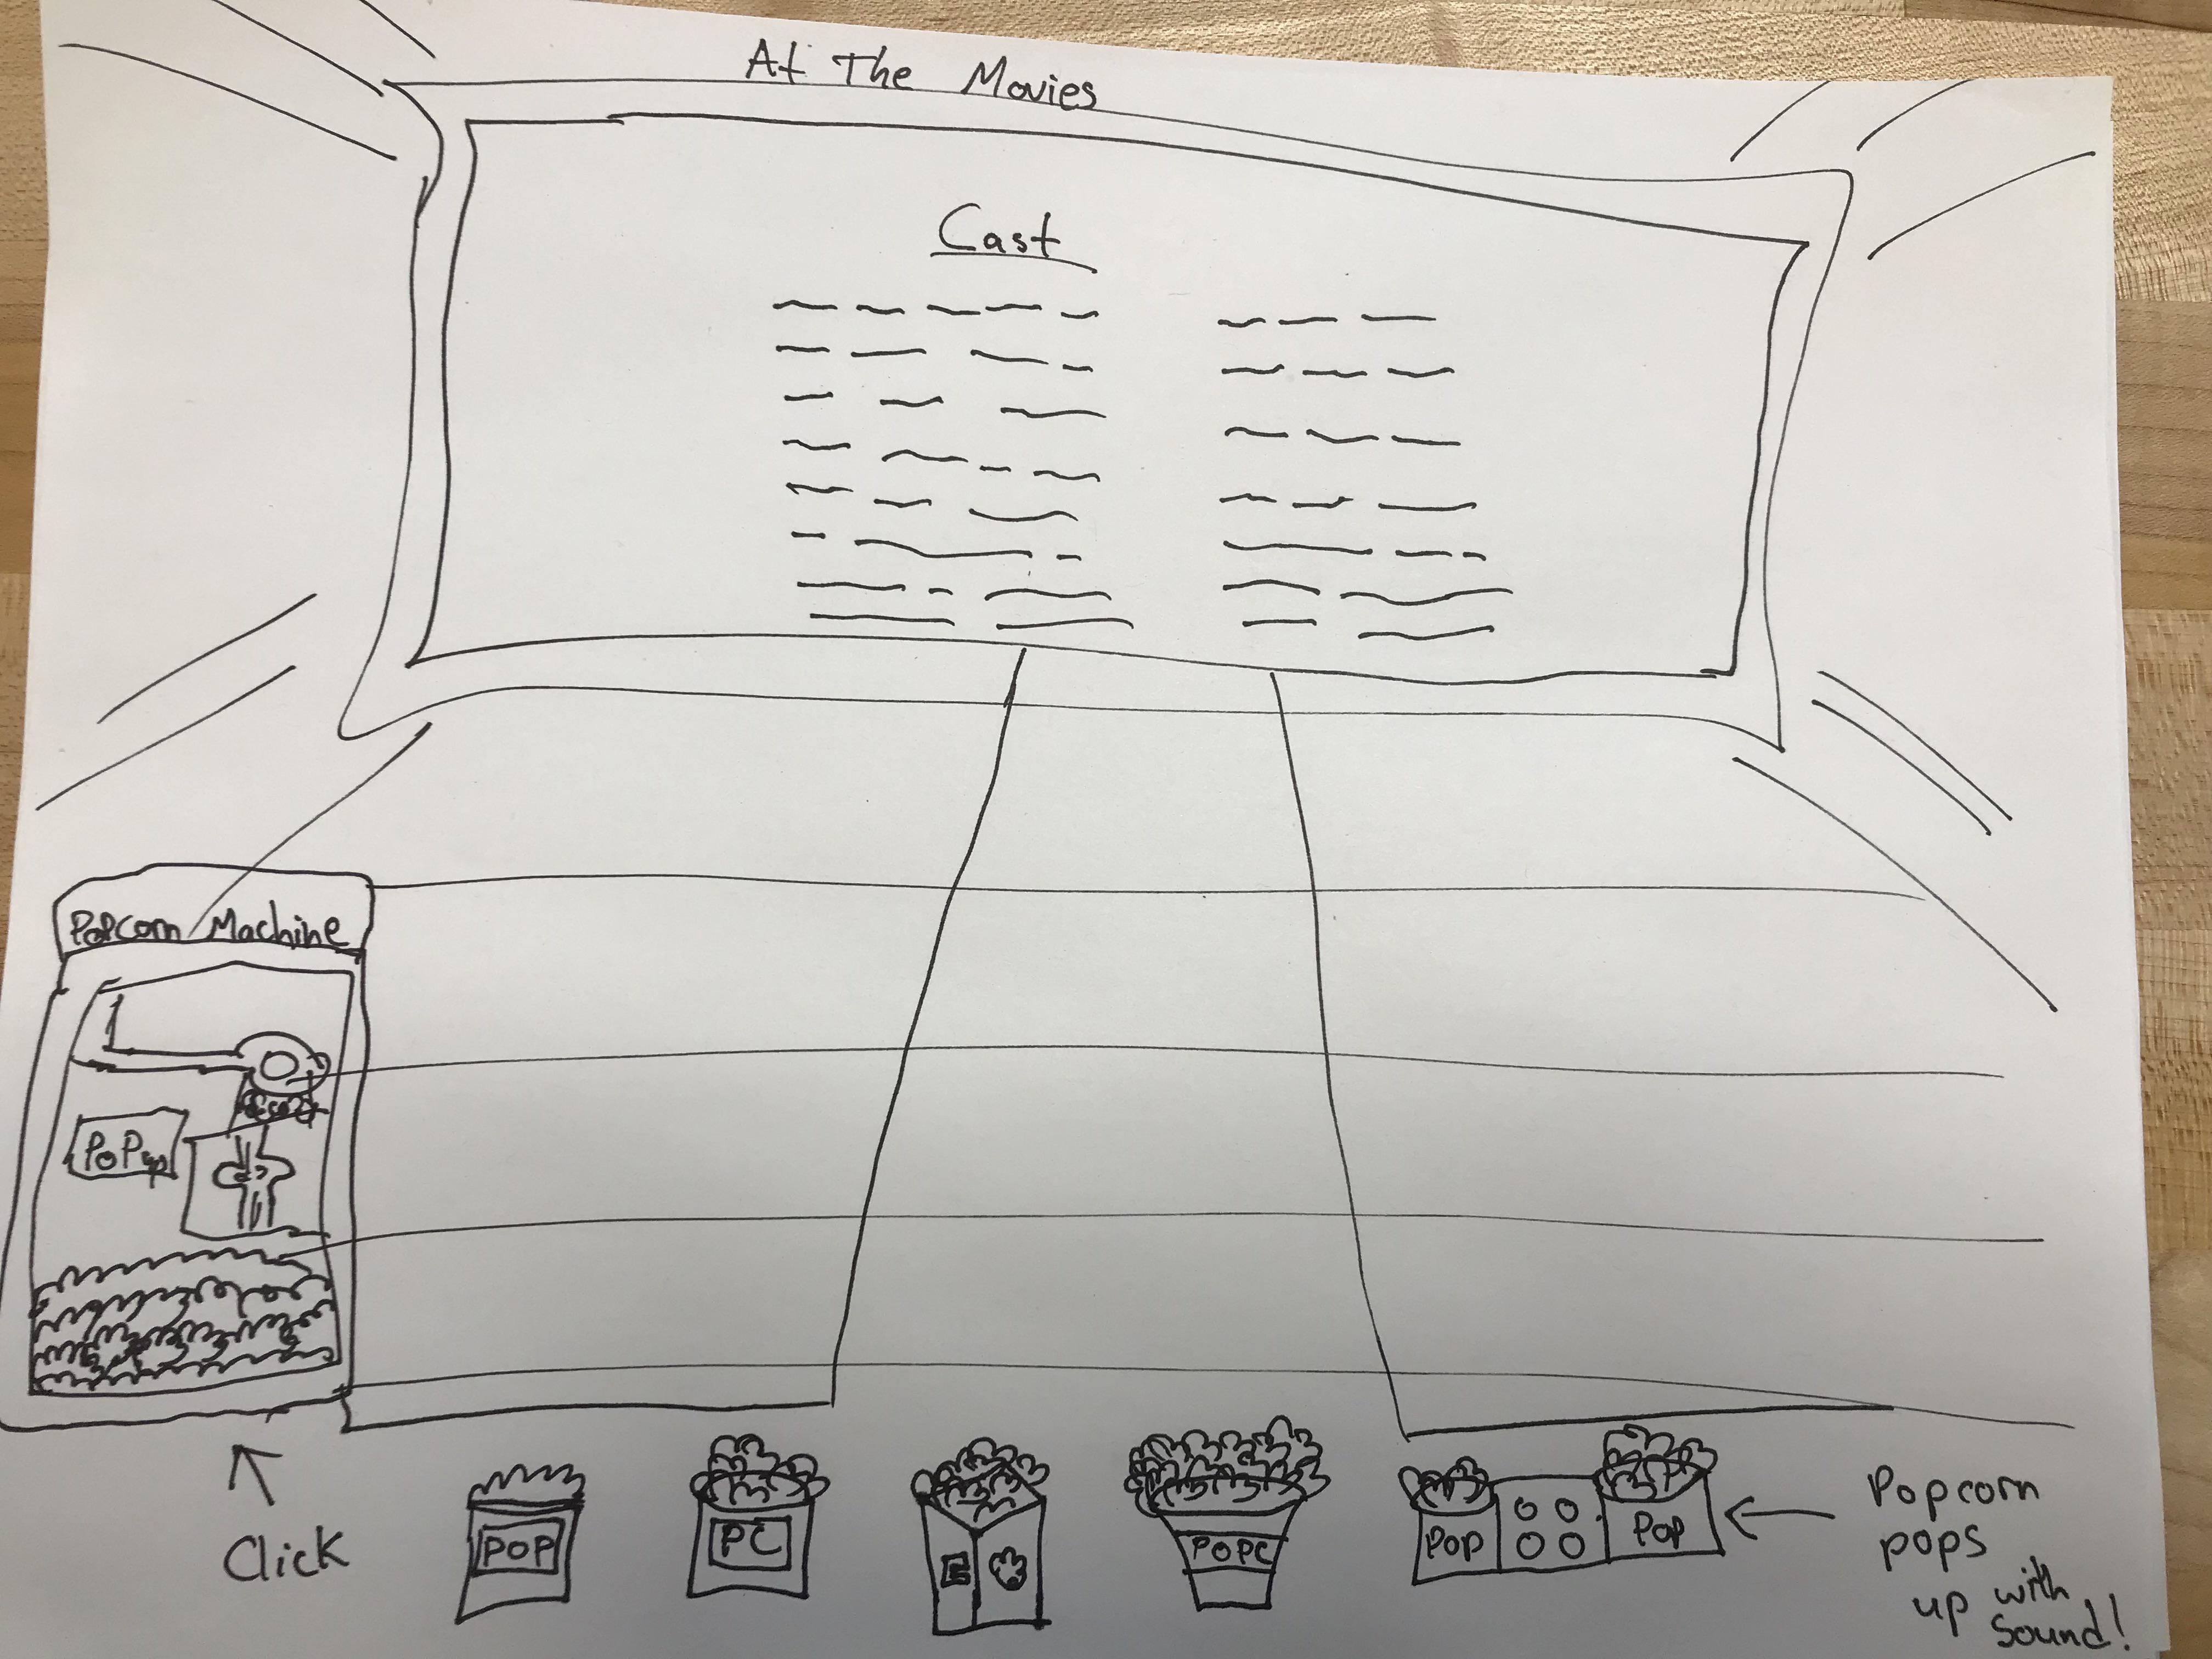 At The Movies
Cast
Popcorn Machine
POP
Click
POP
PC
POPC
Pop
Pop
Popcorn
pops
up with
sound!